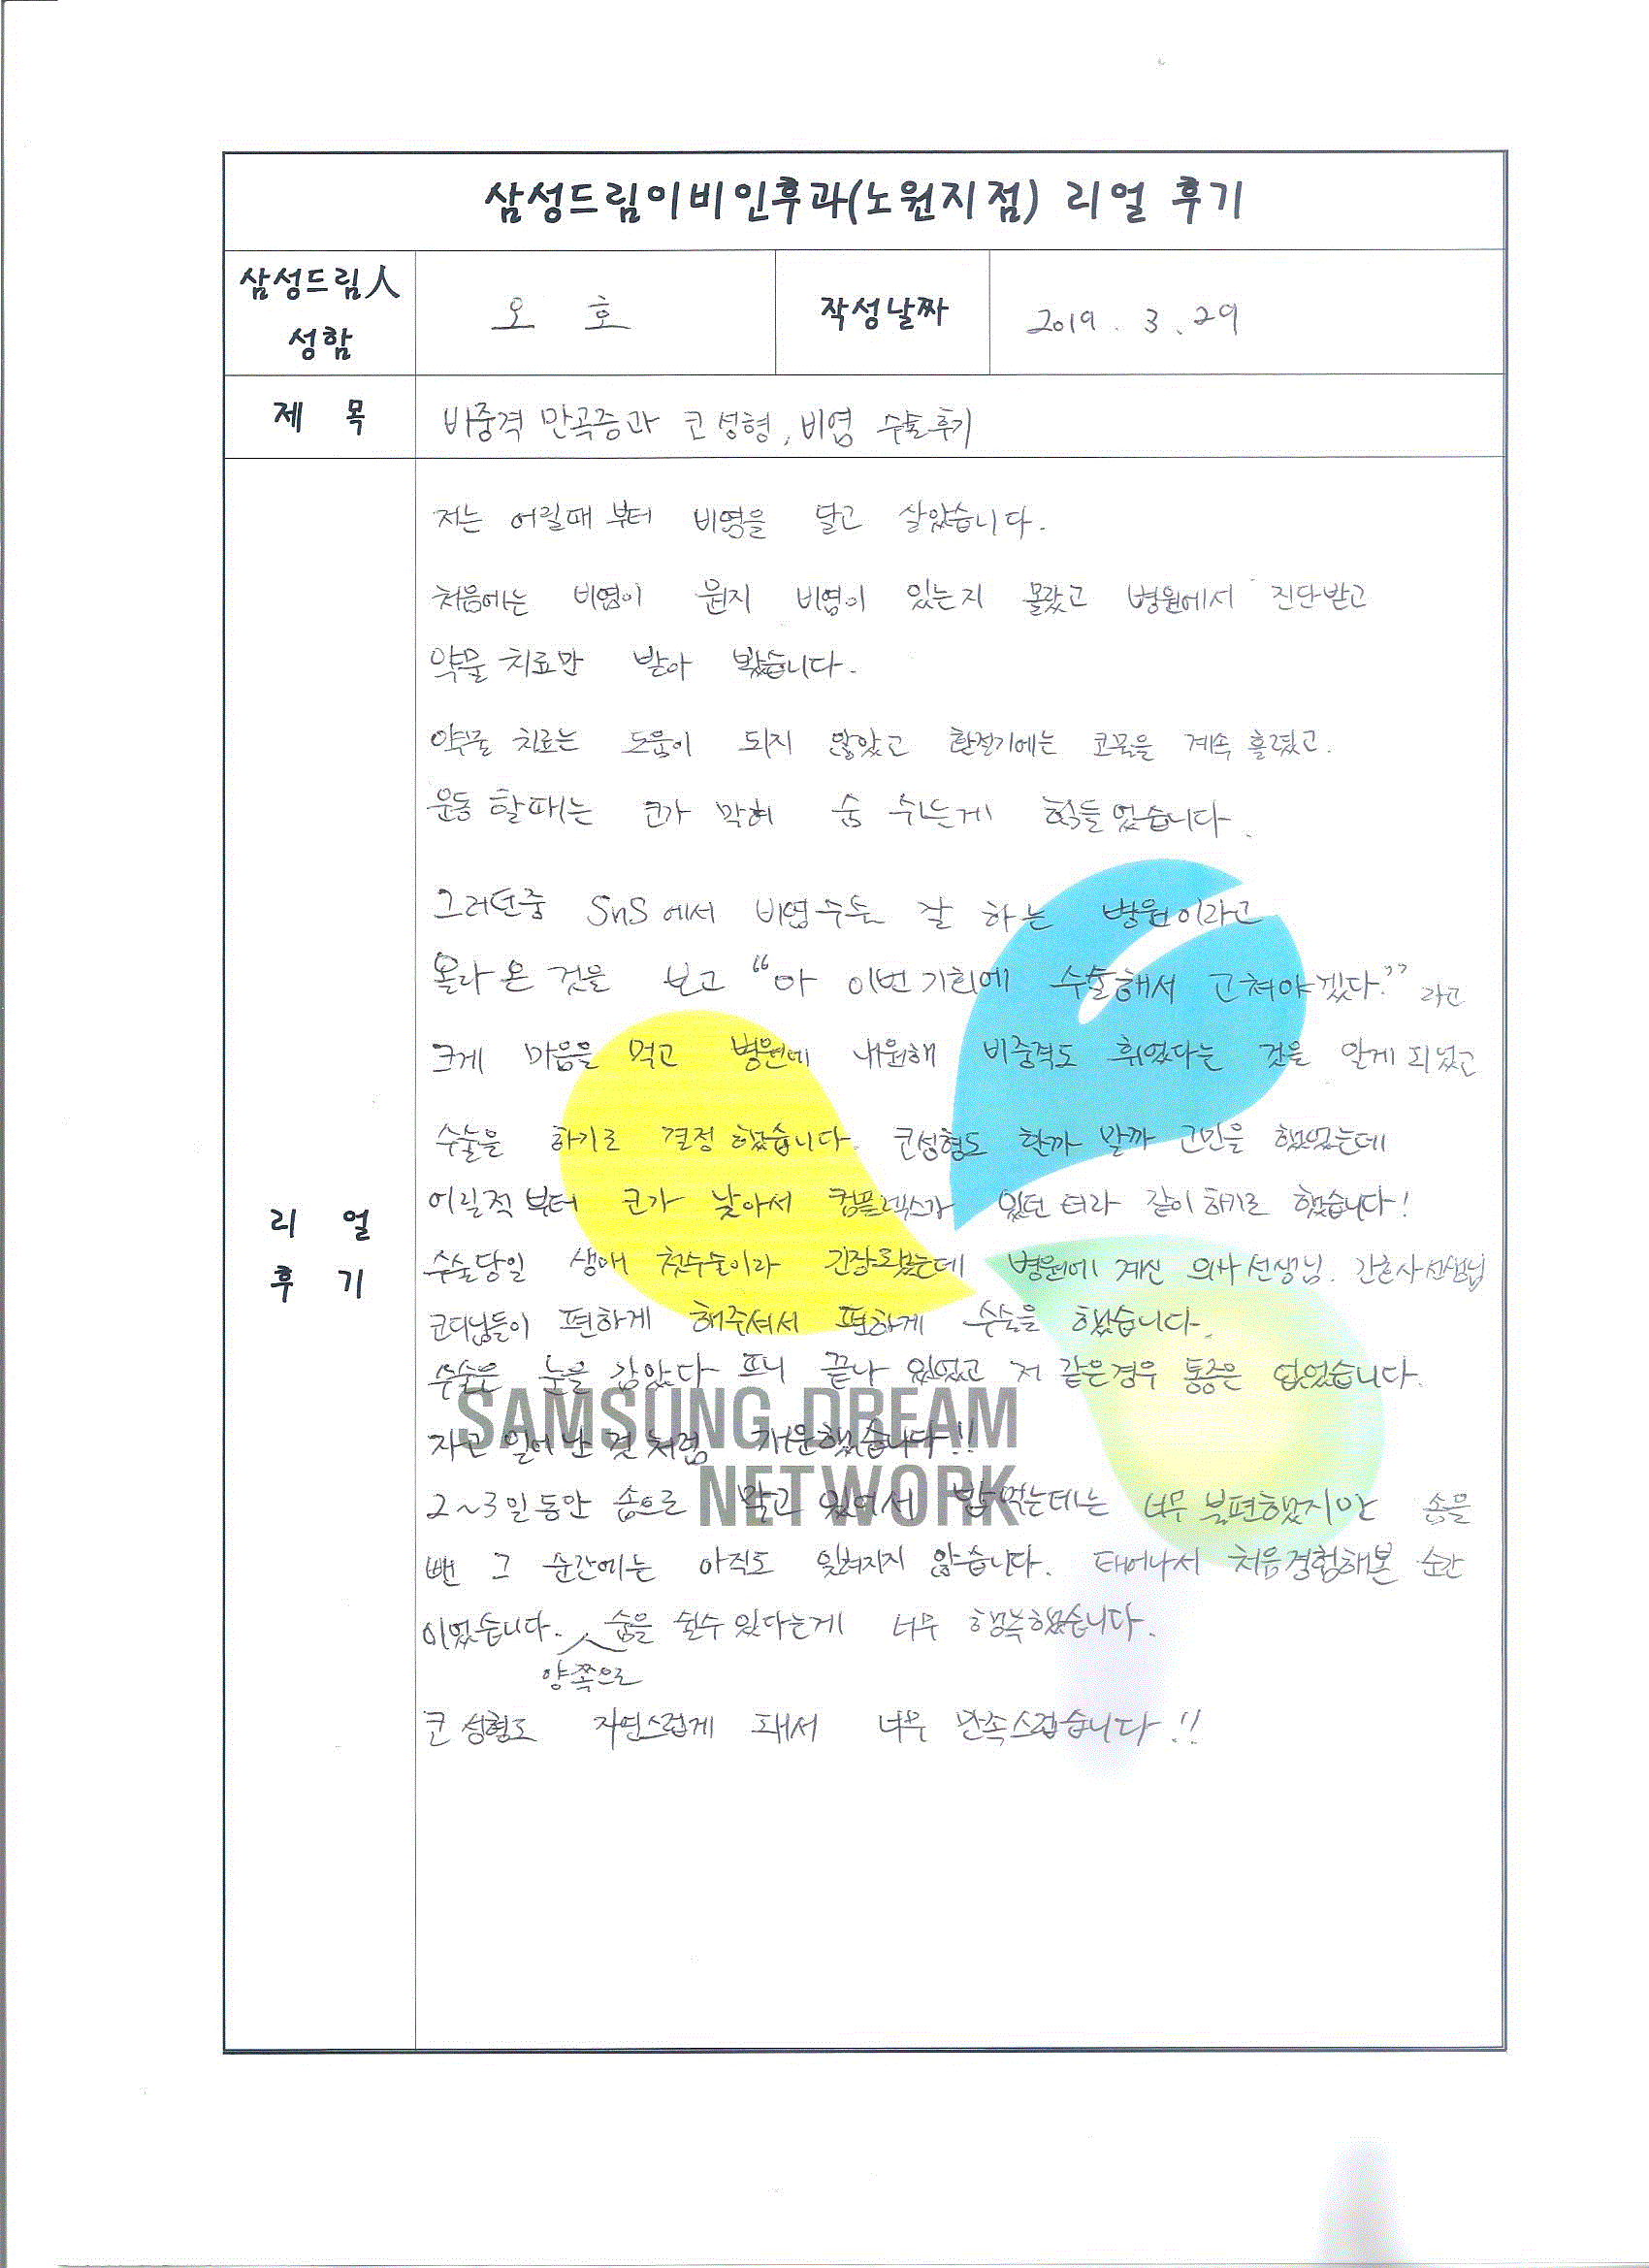 삼성드림이비인후과(노원지점) 리얼 후기
삼성드림人
성함
오 호
작성날짜
2019. 3. 29
제 목
비중격 만곡증과 코 성형, 비염 수술후기
저는 어릴때 부터 비염을 달고 살았습니다.
처음에는 비염이 뭔지 비염이 있는지 몰랐고 병원에서 진단받고
약물 치료만 받아 봤습니다.
약물 치료는 도움이 되지 않았고 환절기에는 코물을 계속 흘렸고.
운동 할때는 코가 막혀 숨 쉬는게 힘들었습니다.
그러던중 SnS에서 비염수술 잘 하는 병원이라고
올라 온 것을 보고 "아 이번 기회에 수술해서 고쳐야겠다." 라고
크게 마음을 먹고 병원에 내원해 비중격도 휘었다는 것을 알게 되었고
수술을 하기로 결정 했습니다. 코성형도 할까 말까 고민을 했었는데
어릴적 부터 코가 낮아서 컴플렉스가 있던 터라 같이 하기로 했습니다!
리 얼
후 기
수술당일 생애 첫수술이라 긴장했는데 병원에 계신 의사선생님. 간호사선생님
코디님들이 편하게 해주셔서 편하게 수술을 했습니다.
수술은 눈을 감았다 뜨니 끝나 있었고 저 같은경우 통증은 없었습니다.
자고 일어난 것 처럼 개운했습니다!!
SAMSUNG DREAM
NETWORK
2~3일동안 솜으로 막고 있어서 밥 먹는데는 너무 불편했지만 솜을
뺀 그 순간에는 아직도 잊혀지지 않습니다. 태어나서 처음경험해본 순간
이었습니다. 숨을 쉴수 있다는게 너무 행복했습니다.
양쪽으로
코 성형도 자연스럽게 돼서 너무 만족스럽습니다!!